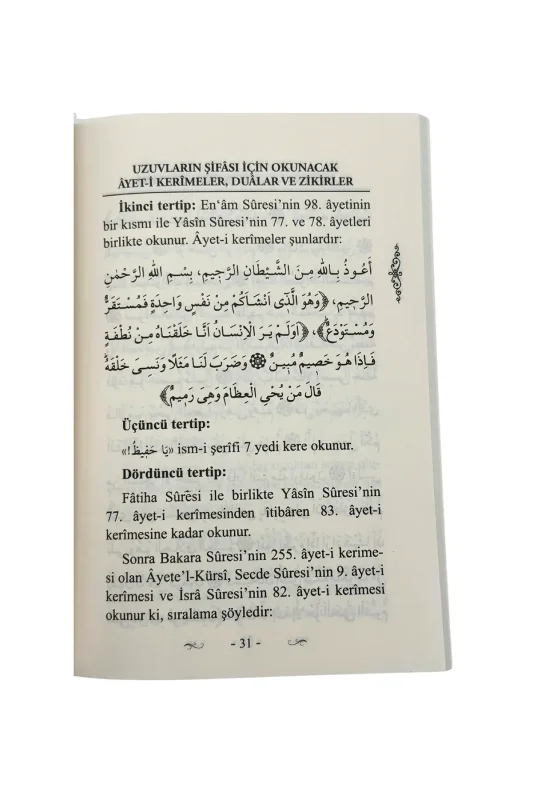 UZUVLARIN ŞİFÂSI İÇİN OKUNACAK
ÂYET-İ KERÎMELER, DUÂLAR VE ZİKİRLER
İkinci tertip: En‘âm Sûresi’nin 98. âyetinin
bir kısmı ile Yâsîn Sûresi’nin 77. ve 78. âyetleri
birlikte okunur. Âyet-i kerîmeler şunlardır:
اَعُوذُ بِاللّٰهِ مِنَ الشَّيْطَانِ الرَّجِيمِ، بِسْمِ اللّٰهِ الرَّحْمٰنِ
الرَّحِيمِ، ﴿وَهُوَ الَّذٖى اَنْشَاَكُمْ مِنْ نَفْسٍ وَاحِدَةٍ فَمُسْتَقَرٌّ
وَمُسْتَوْدَعٌ﴾، ﴿اَوَلَمْ يَرَ الْاِنْسَانُ اَنَّا خَلَقْنَاهُ مِنْ نُطْفَةٍ
فَاِذَا هُوَ خَصِيمٌ مُبِينٌ ۞ وَضَرَبَ لَنَا مَثَلًا وَنَسِىَ خَلْقَهُ
قَالَ مَنْ يُحْيِ الْعِظَامَ وَهِىَ رَمِيمٌ﴾
Üçüncü tertip:
«يَا حَفِيظُ!» ism-i şerîfi 7 yedi kere okunur.
Dördüncü tertip:
Fâtiha Sûresi ile birlikte Yâsîn Sûresi’nin
77. âyet-i kerîmesinden îtibâren 83. âyet-i
kerîmesine kadar okunur.
Sonra Bakara Sûresi’nin 255. âyet-i kerime-
si olan Âyete’l-Kürsî, Secde Sûresi’nin 9. âyet-i
kerîmesi ve İsrâ Sûresi’nin 82. âyet-i kerîmesi
okunur ki, sıralama şöyledir:
- 31 -